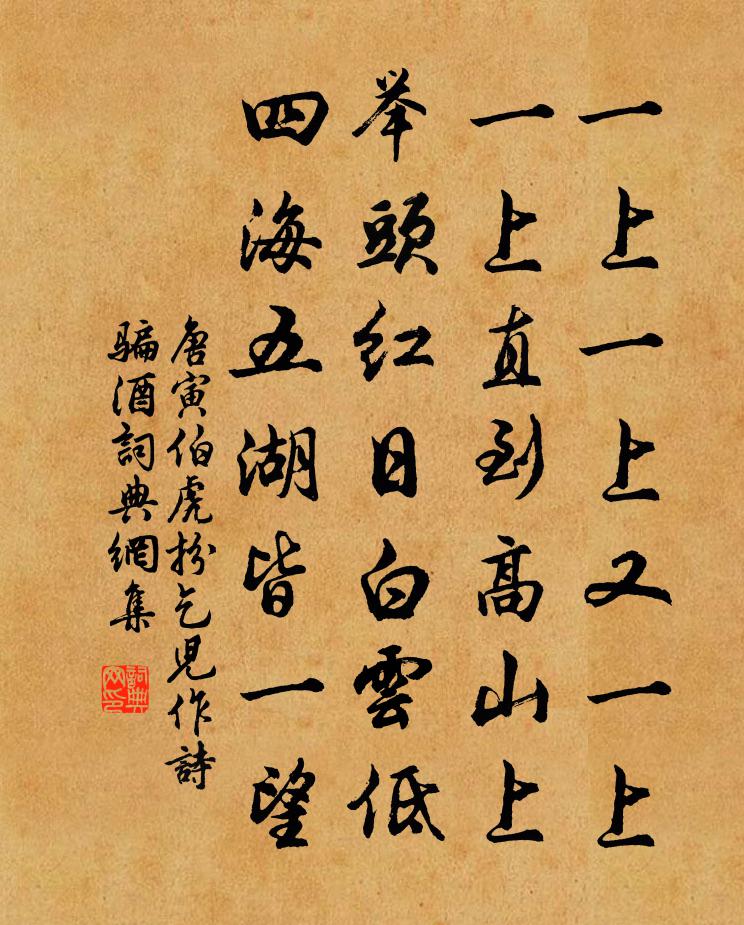 一上一上又一上
一上直到高山上
举頭紅日白雲低
四海五湖皆一望
唐寅伯虎扮乞児作詩
騙酒詞典網集
詞典网印